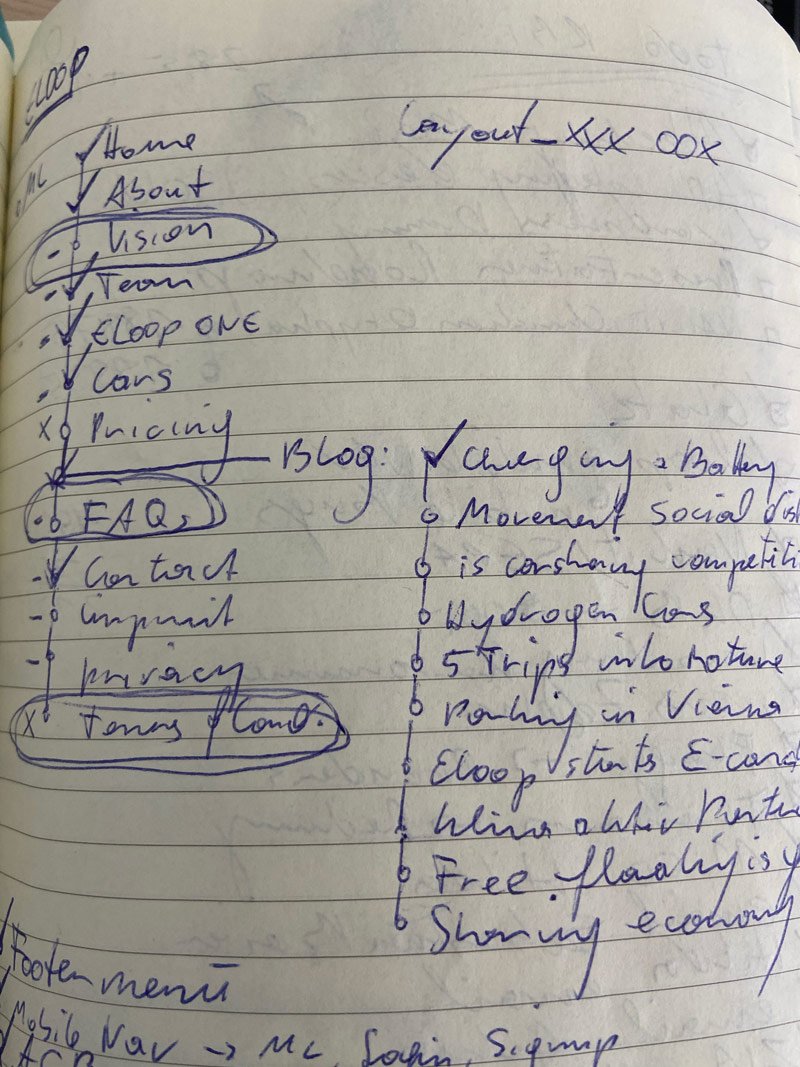 ELOOP
Layout_XXX OOX
ML
Home
About
Vision
Team
ELOOP ONE
Cars
x Pricing
FAQs
Contact
imprint
privacy
x Terms & Cond.
Blog:
Charging & Battery
Movement Social dist
is carsharing competiti
Hydrogen Cars
5 Trips into nature
Parking in Vienna
Eloop starts E-card
klima aktiv Partne
Free floating is
Sharing economy
Footer menü
Mobile Nav → ML, Login, Signup